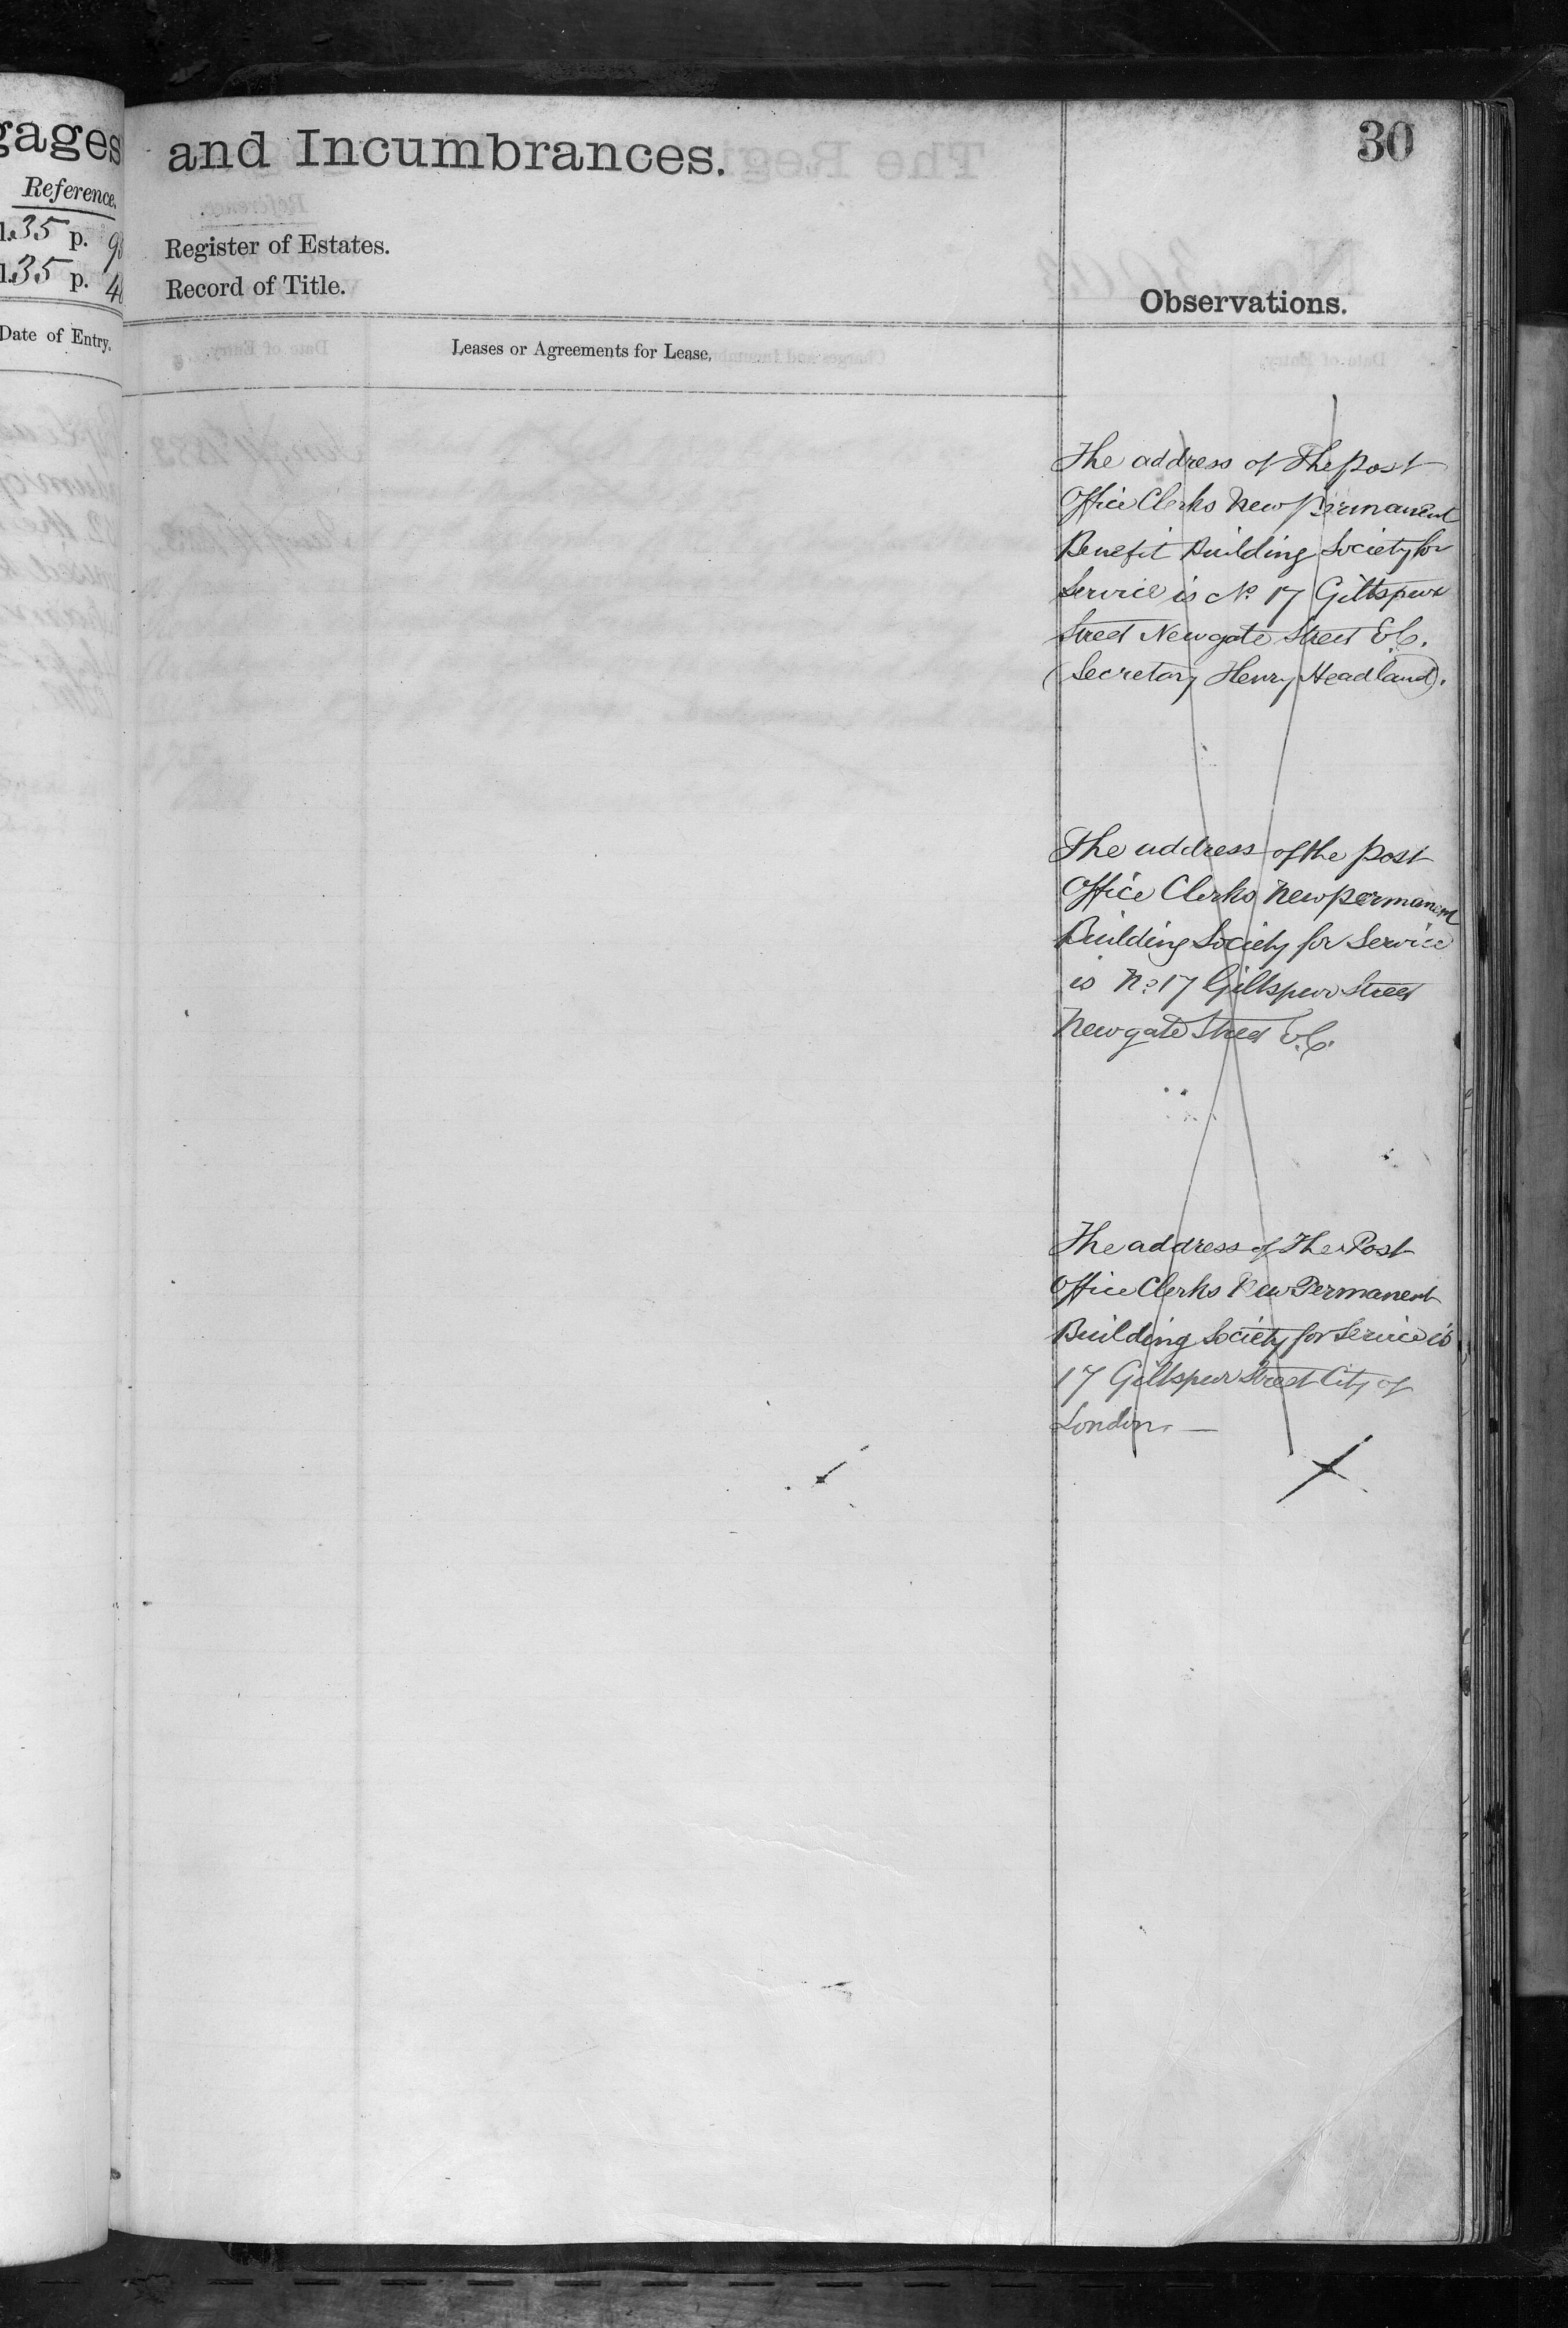 gages
Reference.
l.35 p.
l.35 p.
Date of Entry.
and Incumbrances.
30
Register of Estates.
Record of Title.
Observations.
Leases or Agreements for Lease.
The address of The post
Office Clerks New Permanent
Benefit Building Society for
Service is No. 17 Giltspur
Street Newgate Street E.C.
(Secretary Henry Headland).
The address of the post
Office Clerks New permanent
Building Society for Service
is No. 17 Giltspur Street
Newgate Street E.C.
The address of The Post
Office Clerks New Permanent
Building Society for Service is
17 Giltspur Street City of
London. —